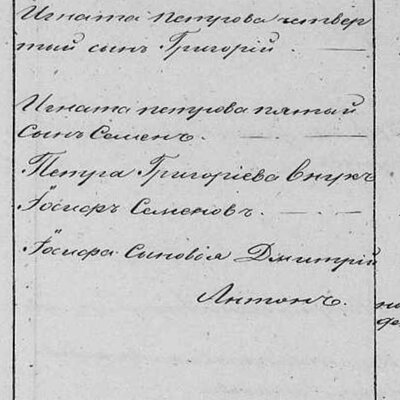 Игната Петрова четвер
тый сынъ Григорій
Игната петрова пятый
сынъ Семенъ.
Петра Григоріева внукъ
Іосифъ Семеновъ.
Іосифа сыновья Дмитрій
Антонъ.